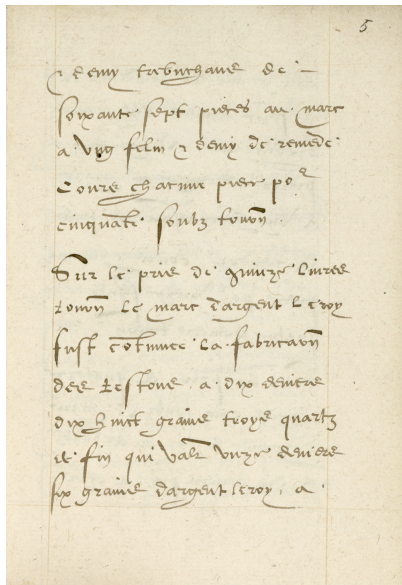 5
& demy trebuchans de
soixante sept pieces au marc
a ung felin & demy de remede
Coure chacune piece por
cinquante soubz tourn
Sur le prie de quinze livres
tourn le marc dargent le roy
fust continuee la fabricaon
des Testons a dix deniers
dix huict grains troys quartz
de fin qui valt unze deniers
six grains dargent leroy, a